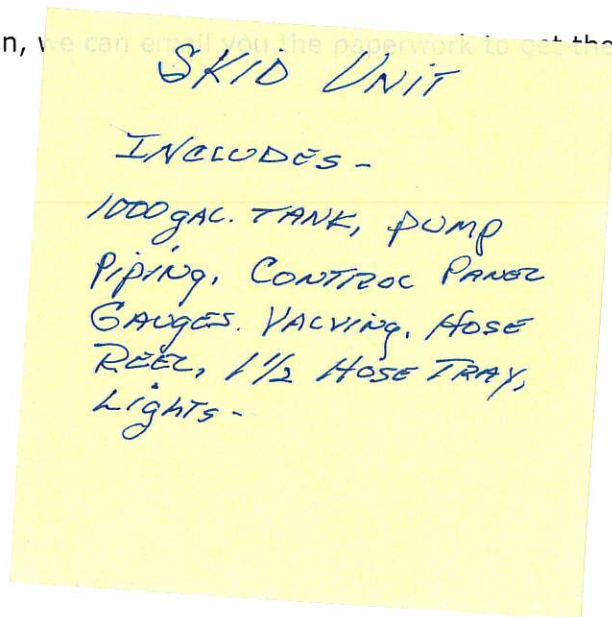 n, we can email you the paperwork to get the
SKID UNIT
INCLUDES -
1000 gAL. TANK, PUMP
PIPINg, CONTROL PANEL
GAUGES. VALVINg, HOSE
REEL, 1 1/2 HOSE TRAY,
LIgHTS -